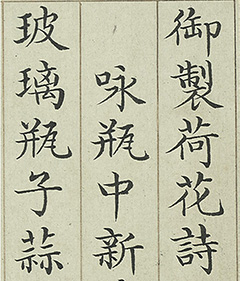 御製荷花詩
咏瓶中新
玻璃瓶子蒜